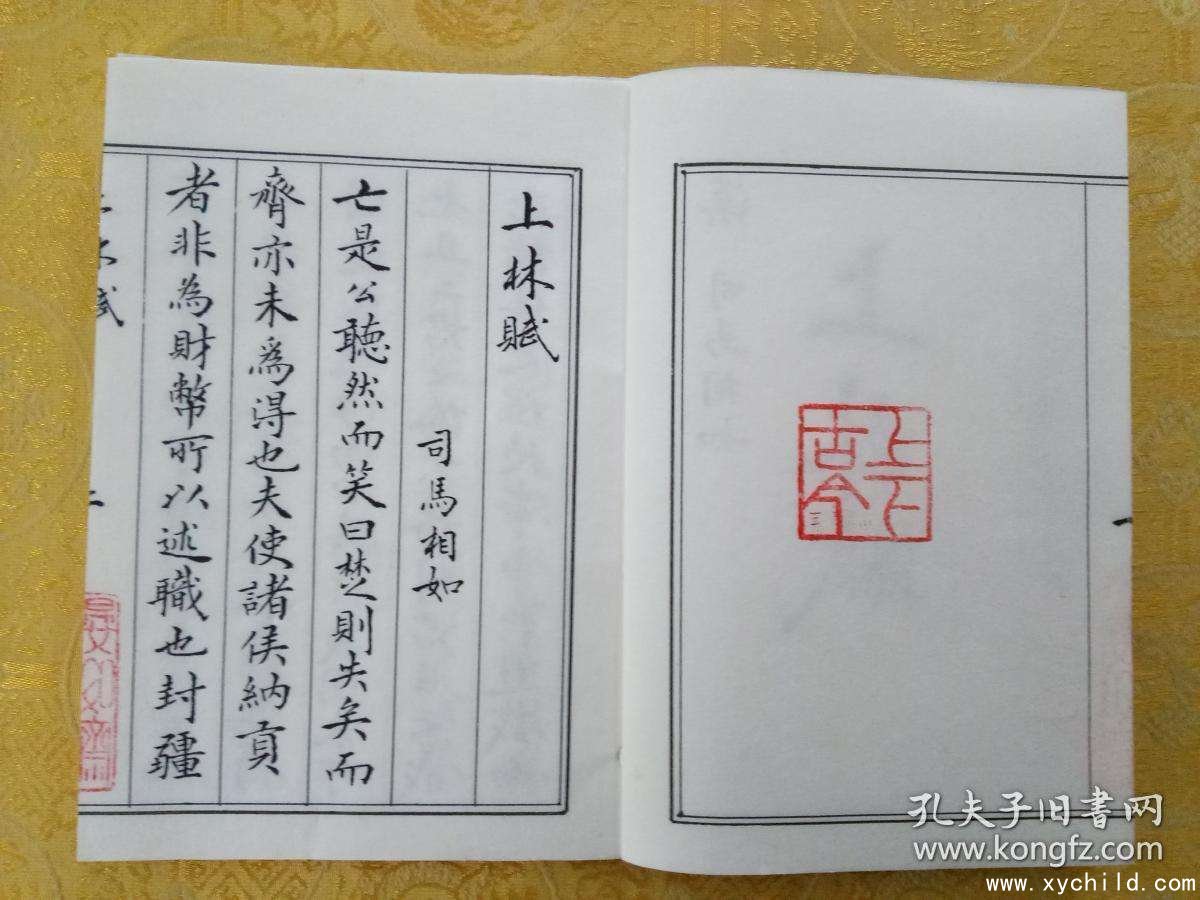 上林賦
司馬相如
亡是公聴然而笑曰楚則失矣而
齊亦未爲得也夫使諸侯納貢
者非為財幣所以述職也封疆
上林賦
孔夫子旧书网
www.kongfz.com
www.xychild.com